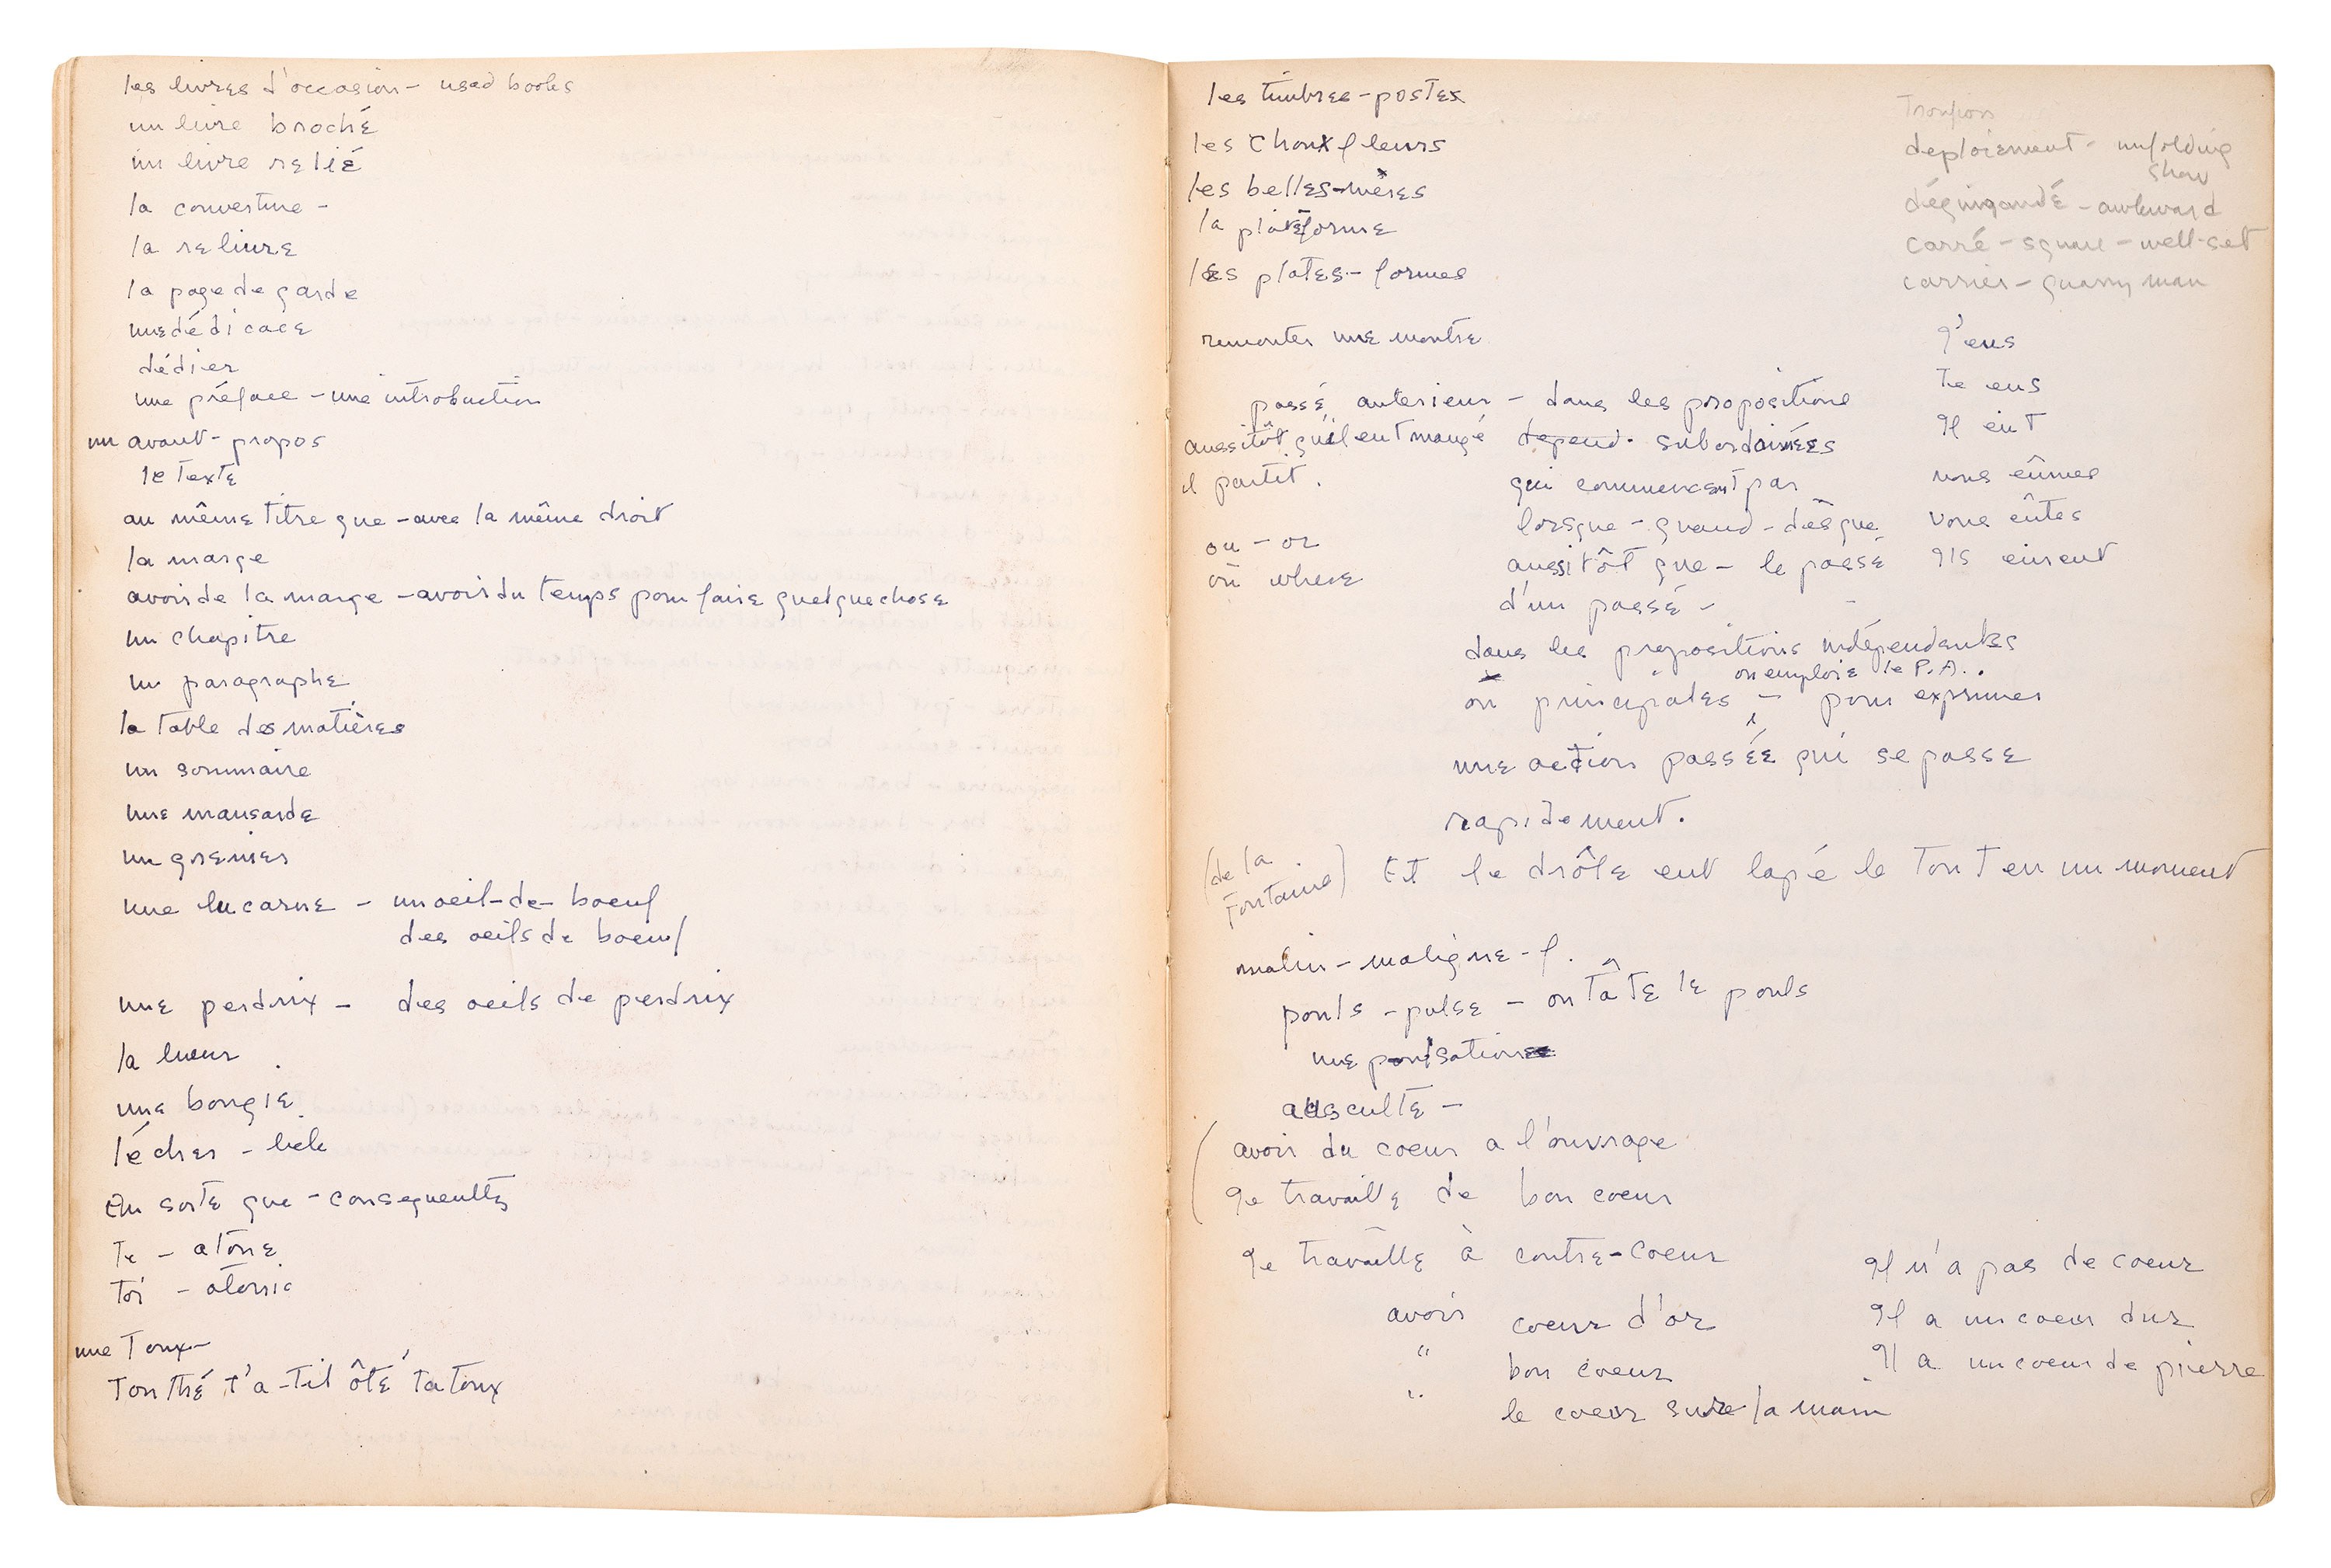 les livres d'occasion - used books
un livre broché
un livre relié
la couverture -
la reliure
la page de garde
une dédicace
dédier
une préface - une introduction
un avant-propos
le texte
au même titre que - avec la même droit
la marge
avoir de la marge - avoir du temps pour faire quelque chose
un chapitre
un paragraphe
la table des matières
un sommaire
une mansarde
un grenier
une lucarne - un oeil-de-boeuf
des oeils de boeuf
une perdrix - des oeils de perdrix
la lueur
une bougie
lécher - lick
en sorte que -
te - atone
toi -
une toux -
Ton thé t'a-t-il ôté ta toux
les timbres-postes
les choux fleurs
les belles-mères
la plateforme
les plates-formes
remonter une montre
passé anterieur - dans les propositions
aussitôt qu'il eut mangé depend. subordonnées
il partit. qui commencent par
lorsque - quand - dès que
ou - or
aussitôt que - le passé
où where
d'un passé -
dans les propositions indépendantes
on emploie le P.A..
ou principales - pour exprimer
une action passée qui se passe
rapidement.
(de la Fontaine) Et le drôle eut lapé le tout en un moment
malin - maligne - f.
pouls - pulse - on tâte le pouls
une pulsation
ausculte -
avoir du coeur a l'ouvrage
Je travaille de bon coeur
Je travaille à contre-coeur
avoir coeur d'or
" bon coeur
" le coeur sur la main
deploiement - unfolding
show
dégingandé - awkward
carré - square - well-set
carrier - quarry man
J'eus
Tu eus
Il eut
nous eûmes
vous eûtes
Ils eurent
Il n'a pas de coeur
Il a un coeur dur
Il a un coeur de pierre